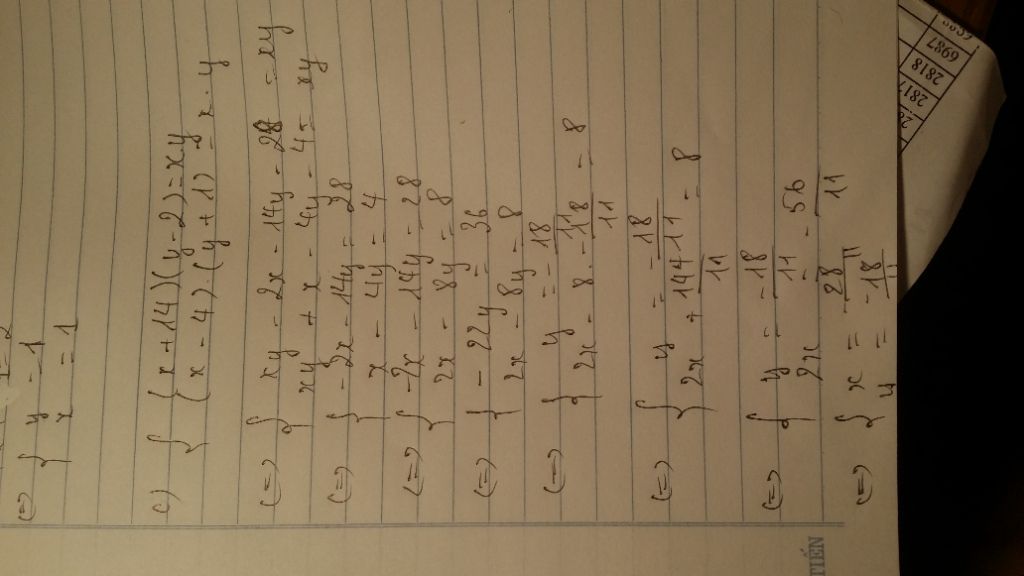 (=) { y = -1
x = 1
c) { (x+14)(y-2)=xy
(x-4).(y+1)=x.y
(=) { xy - 2x - 14y - 28 = xy
xy + x - 4y - 4 = xy
(=) { -2x - 14y = 28
x - 4y = 4
(=) { -2x - 14y = 28
2x - 8y = 8
(=) { -22y = 36
2x - 8y = 8
(=) { y = -18/11
2x - 8 . -18/11 = 8
(=) { y = -18/11
2x + 144/11 = 8
(=) { y = -18/11
2x = -56/11
(=) { x = -28/11
y = -18/11
TIẾN
6987
2818
2817